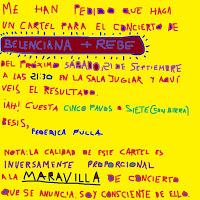 ME HAN PEDIDO QUE HAGA
UN CARTEL PARA EL CONCIERTO DE
BELENCIANA + REBE
DEL PRÓXIMO SÁBADO, 21 DE SEPTIEMBRE
A LAS 21:30 EN LA SALA JUGLAR Y AQUÍ
VEIS EL RESULTADO.
¡AH! CUESTA CINCO PAVOS o SIETE (CON BIRRA)
BESIS,
FEDERICA PULLA
NOTA: LA CALIDAD DE ESTE CARTEL ES
INVERSAMENTE PROPORCIONAL
A LA MARAVILLA DE CONCIERTO
QUE SE ANUNCIA. SOY CONSCIENTE DE ELLO.